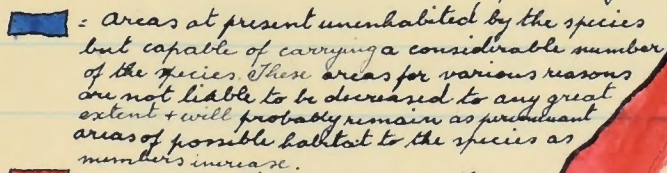 = Areas at present unenhabited by the species
but capable of carrying a considerable number
of the species. These areas for various reasons
are not liable to be decreased to any great
extent + will probably remain as permanant
areas of possible habitat to the species as
numbers increase.